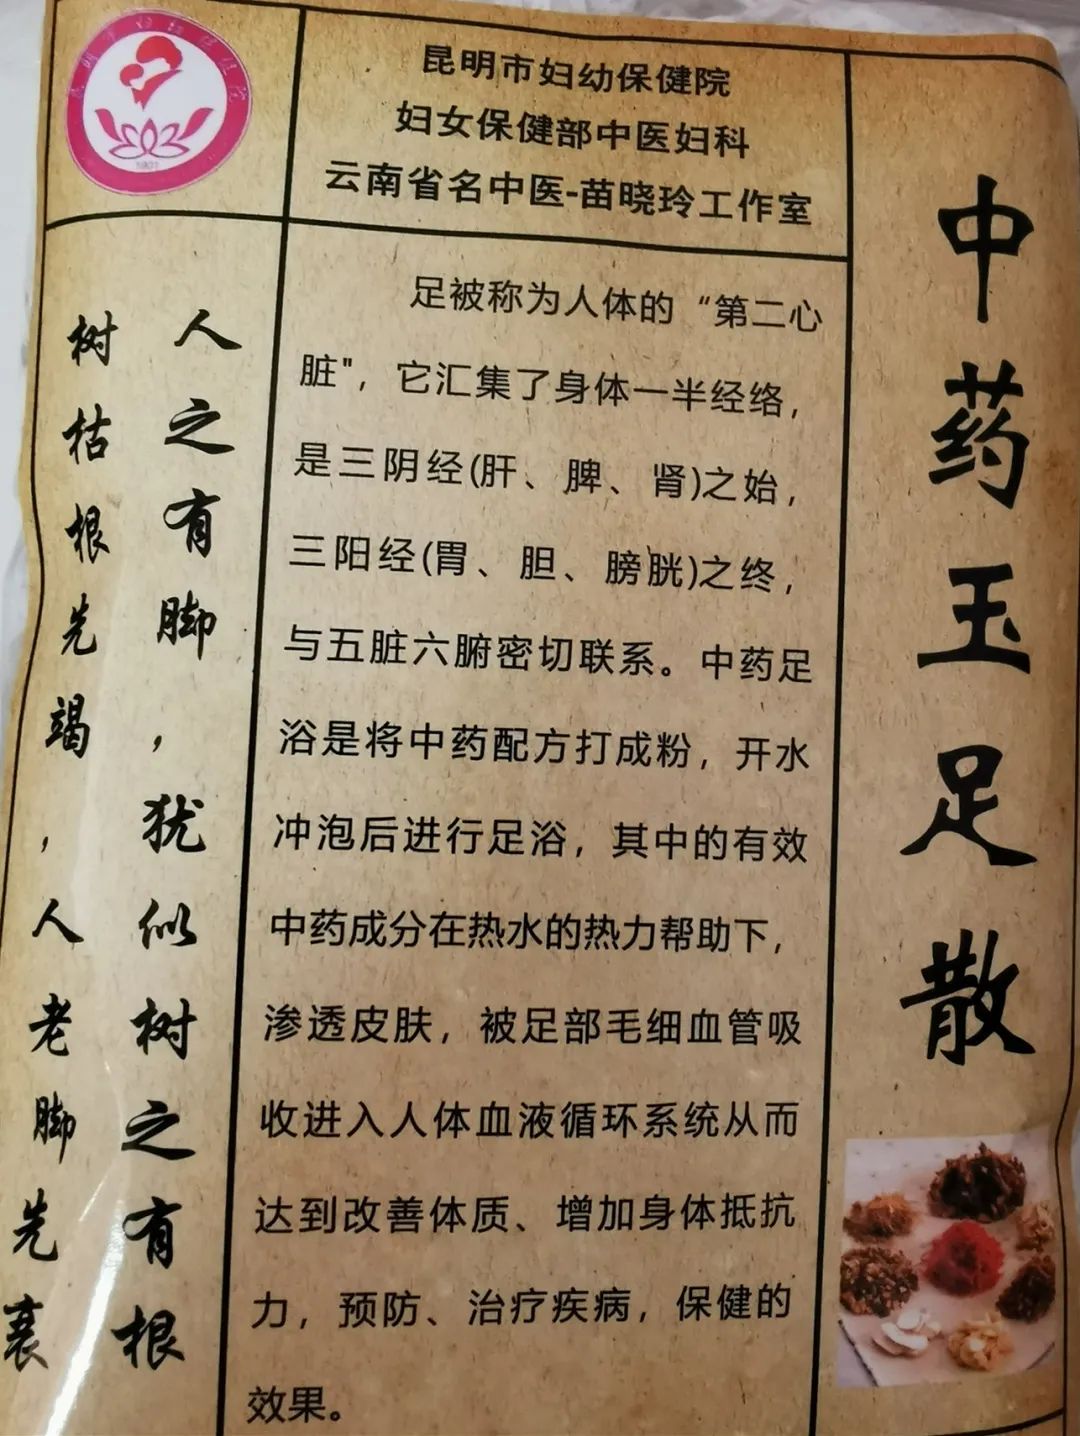 昆明市妇幼保健院
妇女保健部中医妇科
云南省名中医-苗晓玲工作室
中药玉足散
足被称为人体的“第二心
脏"，它汇集了身体一半经络，
是三阴经(肝、脾、肾)之始，
三阳经(胃、胆、膀胱)之终，
与五脏六腑密切联系。中药足
浴是将中药配方打成粉，开水
冲泡后进行足浴，其中的有效
中药成分在热水的热力帮助下，
渗透皮肤，被足部毛细血管吸
收进入人体血液循环系统从而
达到改善体质、增加身体抵抗
力，预防、治疗疾病，保健的
效果。
人之有脚，犹似树之有根
树枯根先竭，人老脚先衰
昆明市妇幼保健院
1901